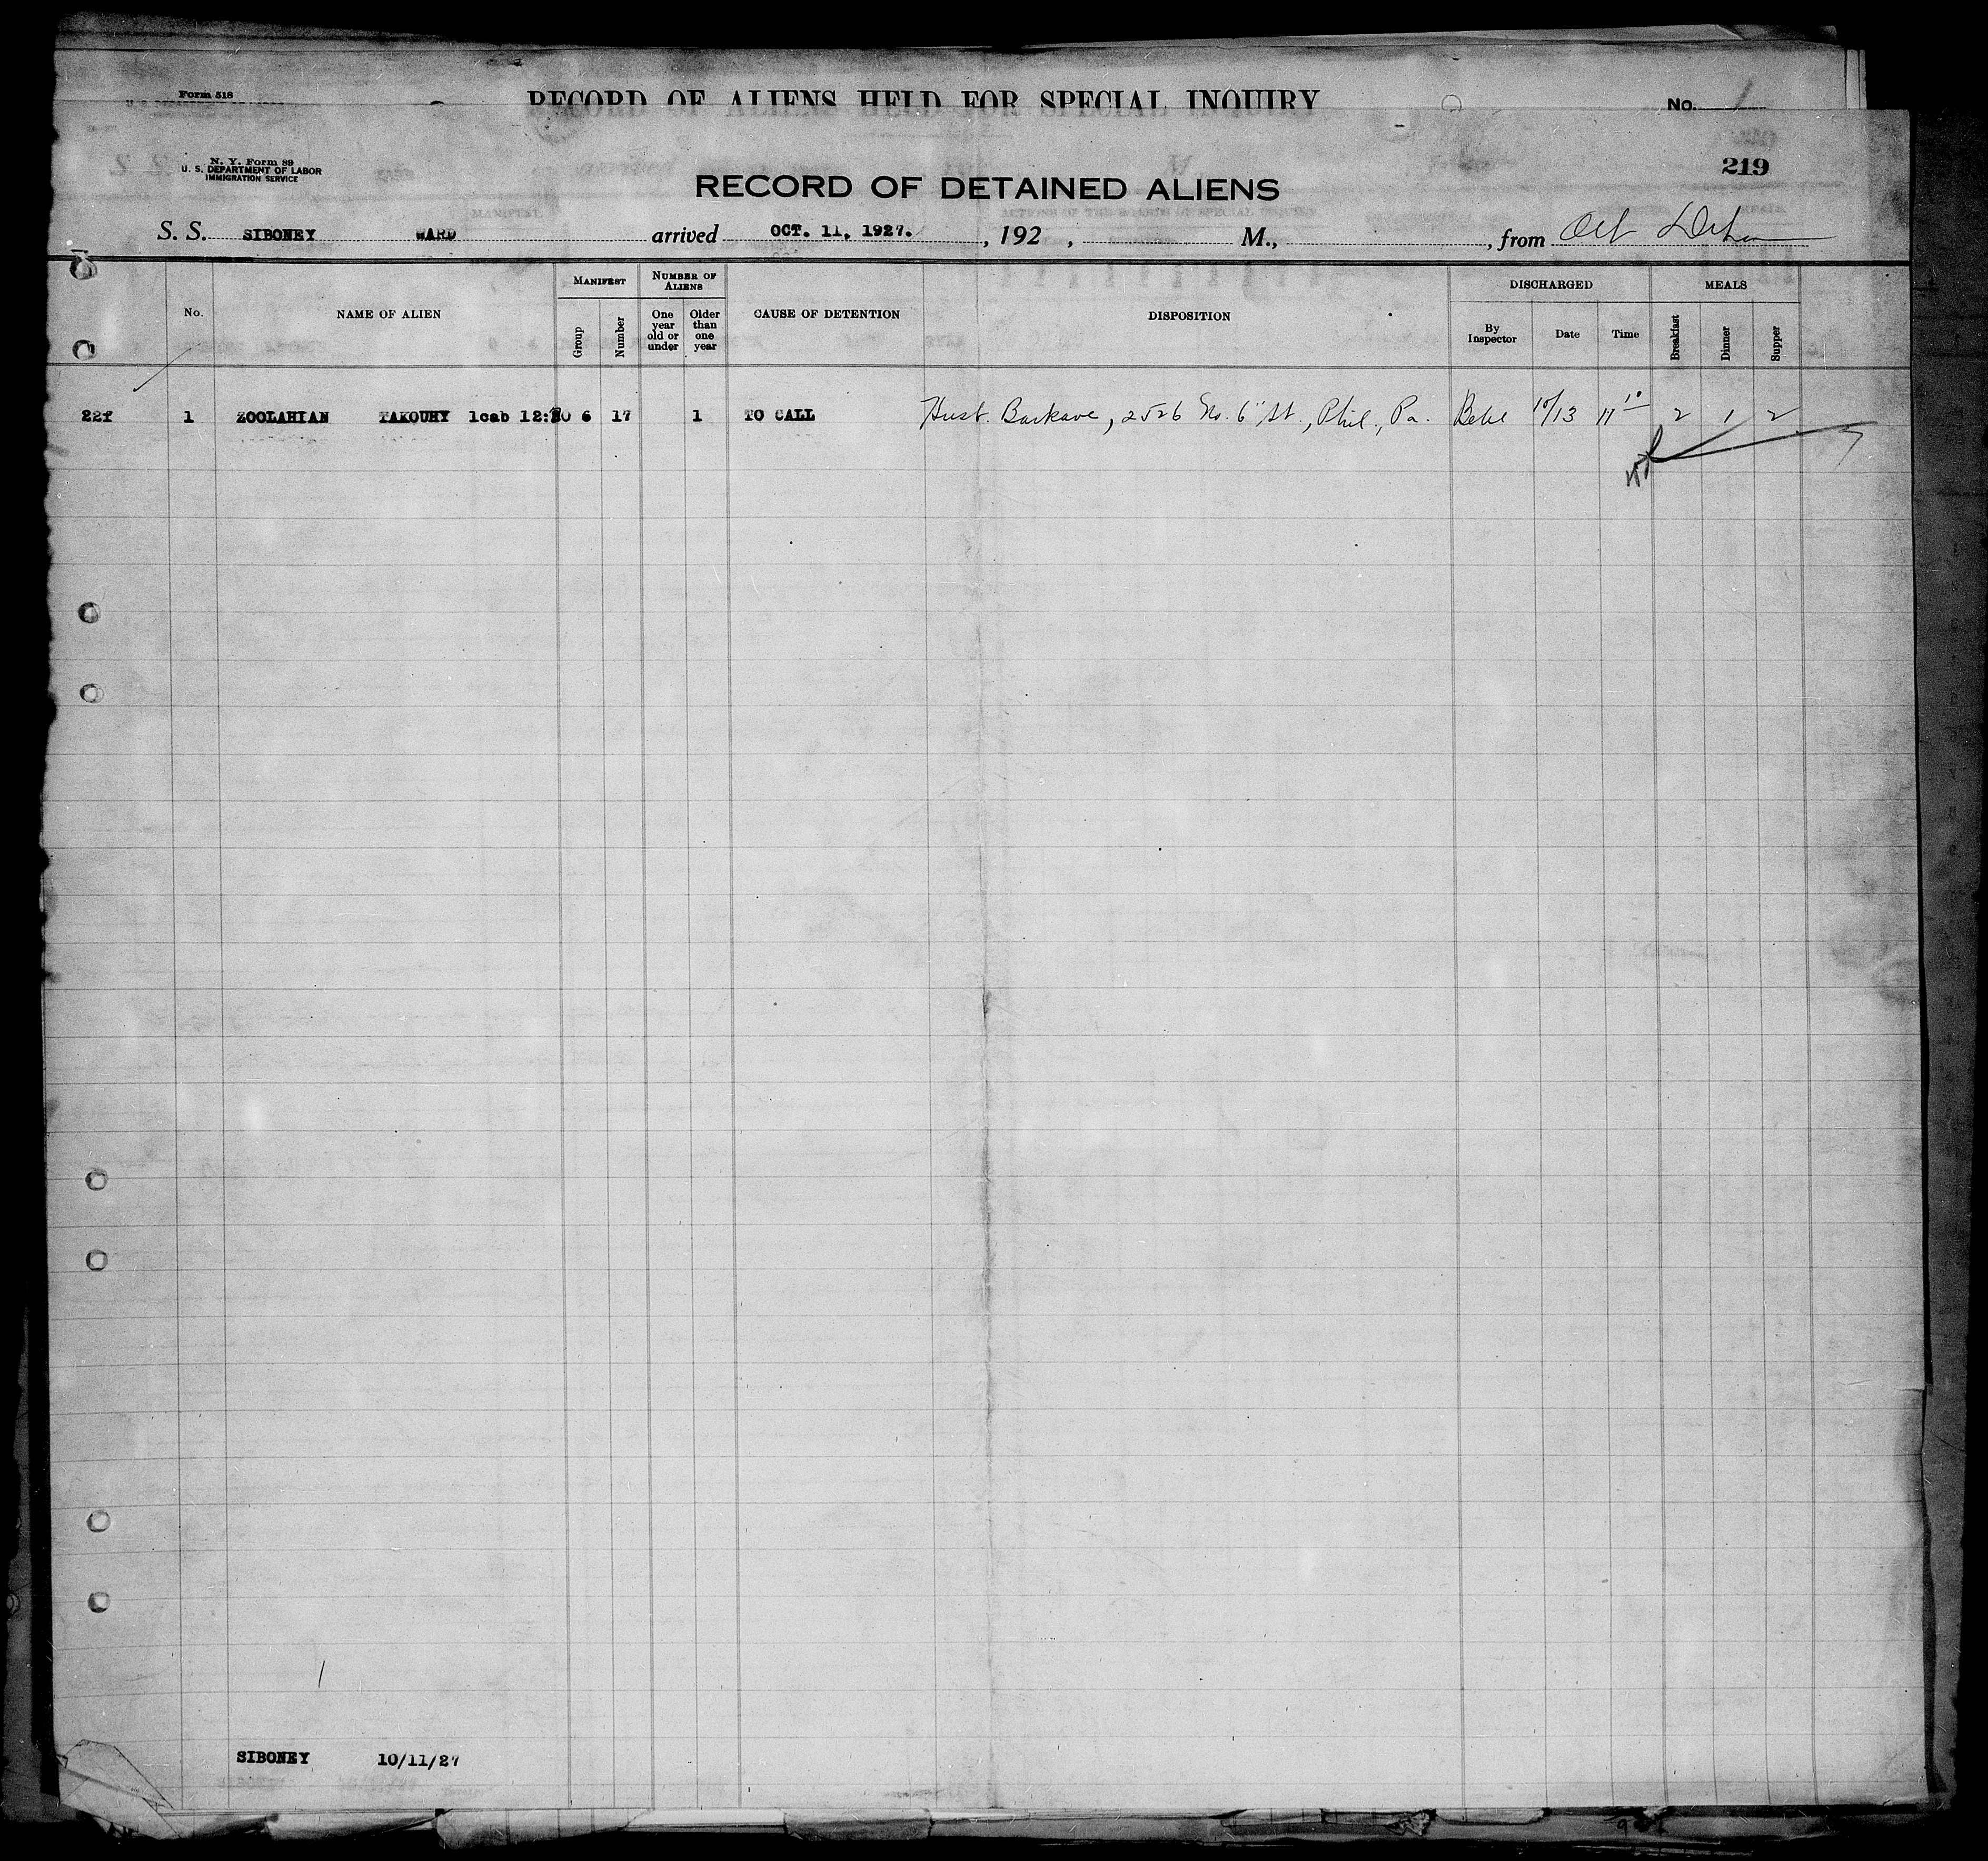 Form 518
RECORD OF ALIENS HELD FOR SPECIAL INQUIRY
No. 1
N. Y. Form 89
U. S. DEPARTMENT OF LABOR
IMMIGRATION SERVICE
219
RECORD OF DETAINED ALIENS
S. S. SIBONEY WARD arrived OCT. 11, 1927. , 192 , M., , from
No. NAME OF ALIEN MANIFEST Group Number NUMBER OF ALIENS One year old or under Older than one year CAUSE OF DETENTION DISPOSITION DISCHARGED By Inspector Date Time MEALS Breakfast Dinner Supper
22f 1 ZOOLAHIAN TAKOUHY 1cab 12:30 6 17 1 TO CALL Husb. Barkave, 2526 No. 6" St., Phil., Pa. 10/13 11 10 2 1 2
1
SIBONEY 10/11/27